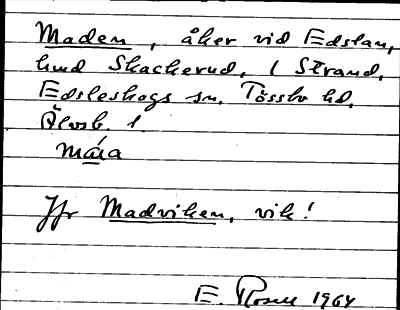 Maden, åker vid Edslan,
hmd Skackerud, / Strand,
Edsleskogs sn, Tössbo hd,
Älvsb. l.
Madviken, vik!
E. Rosell 1964